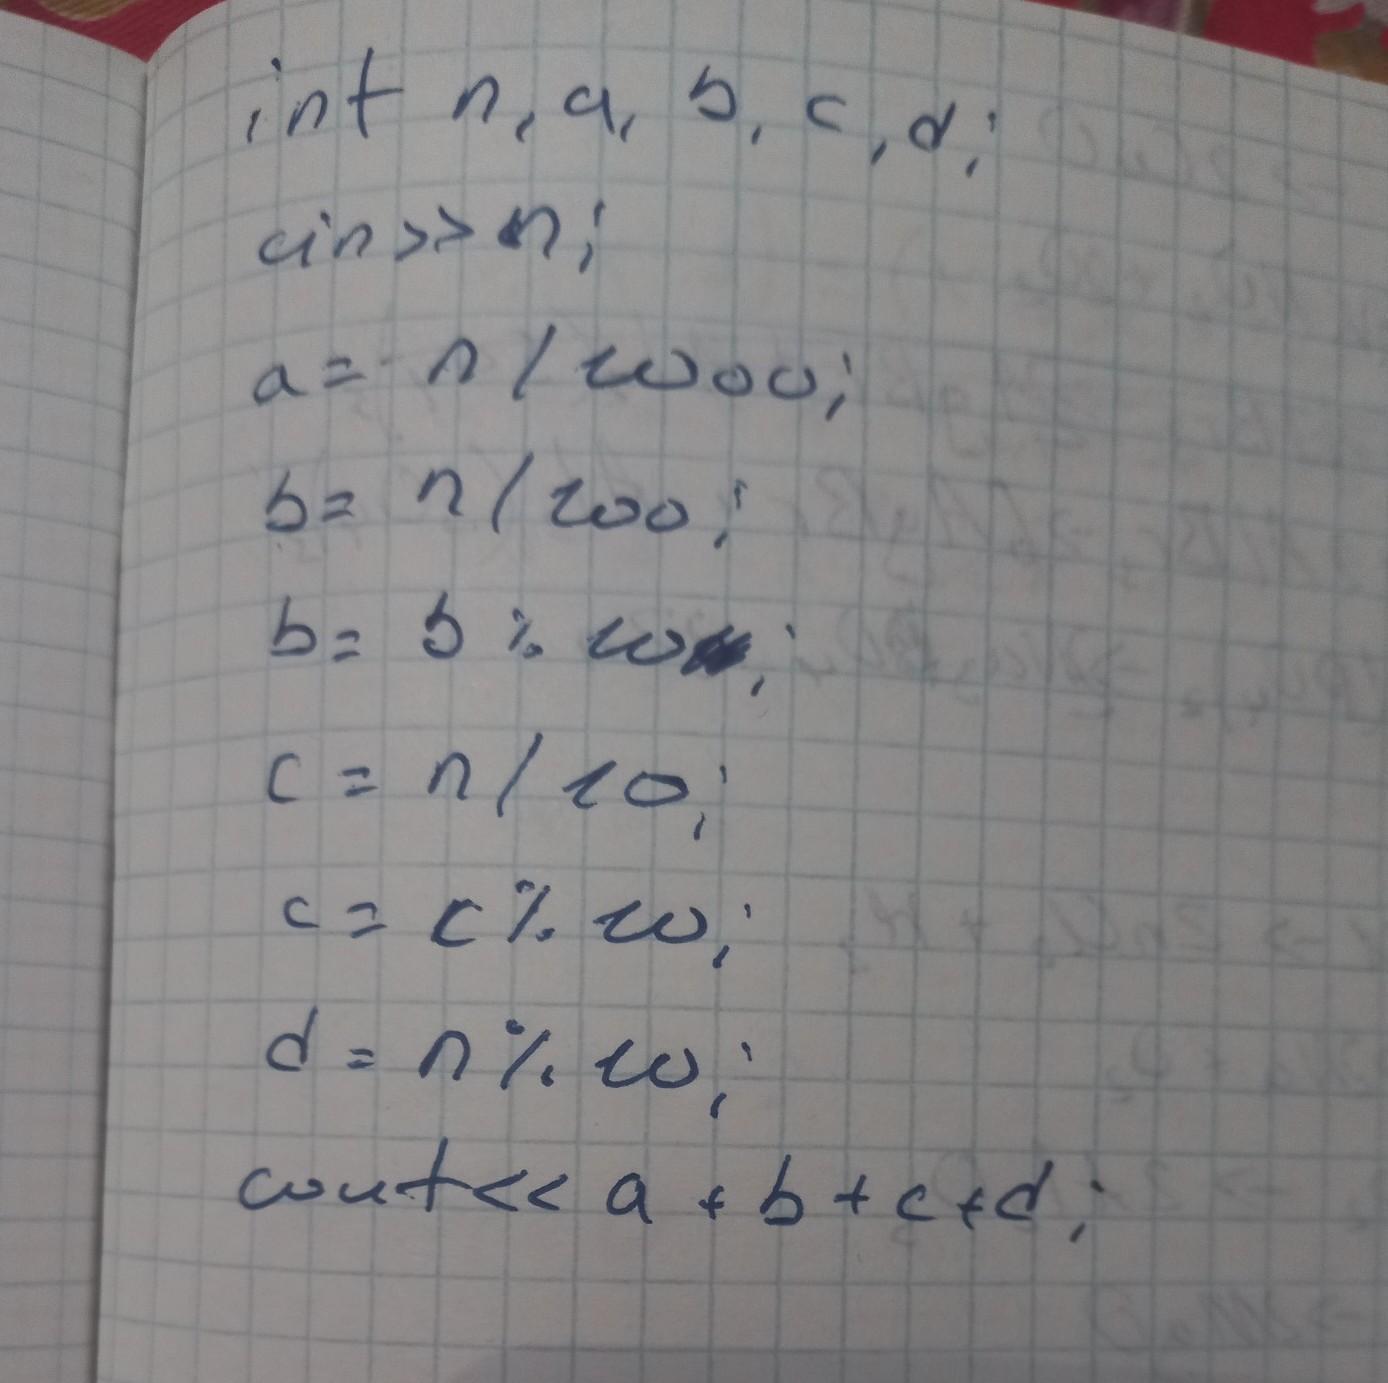 int n, a, b, c, d;
cin>>n;
a = n / 1000;
b = n / 100;
b = b % 10;
c = n / 10;
c = c % 10;
d = n % 10;
cout<< a + b + c + d;